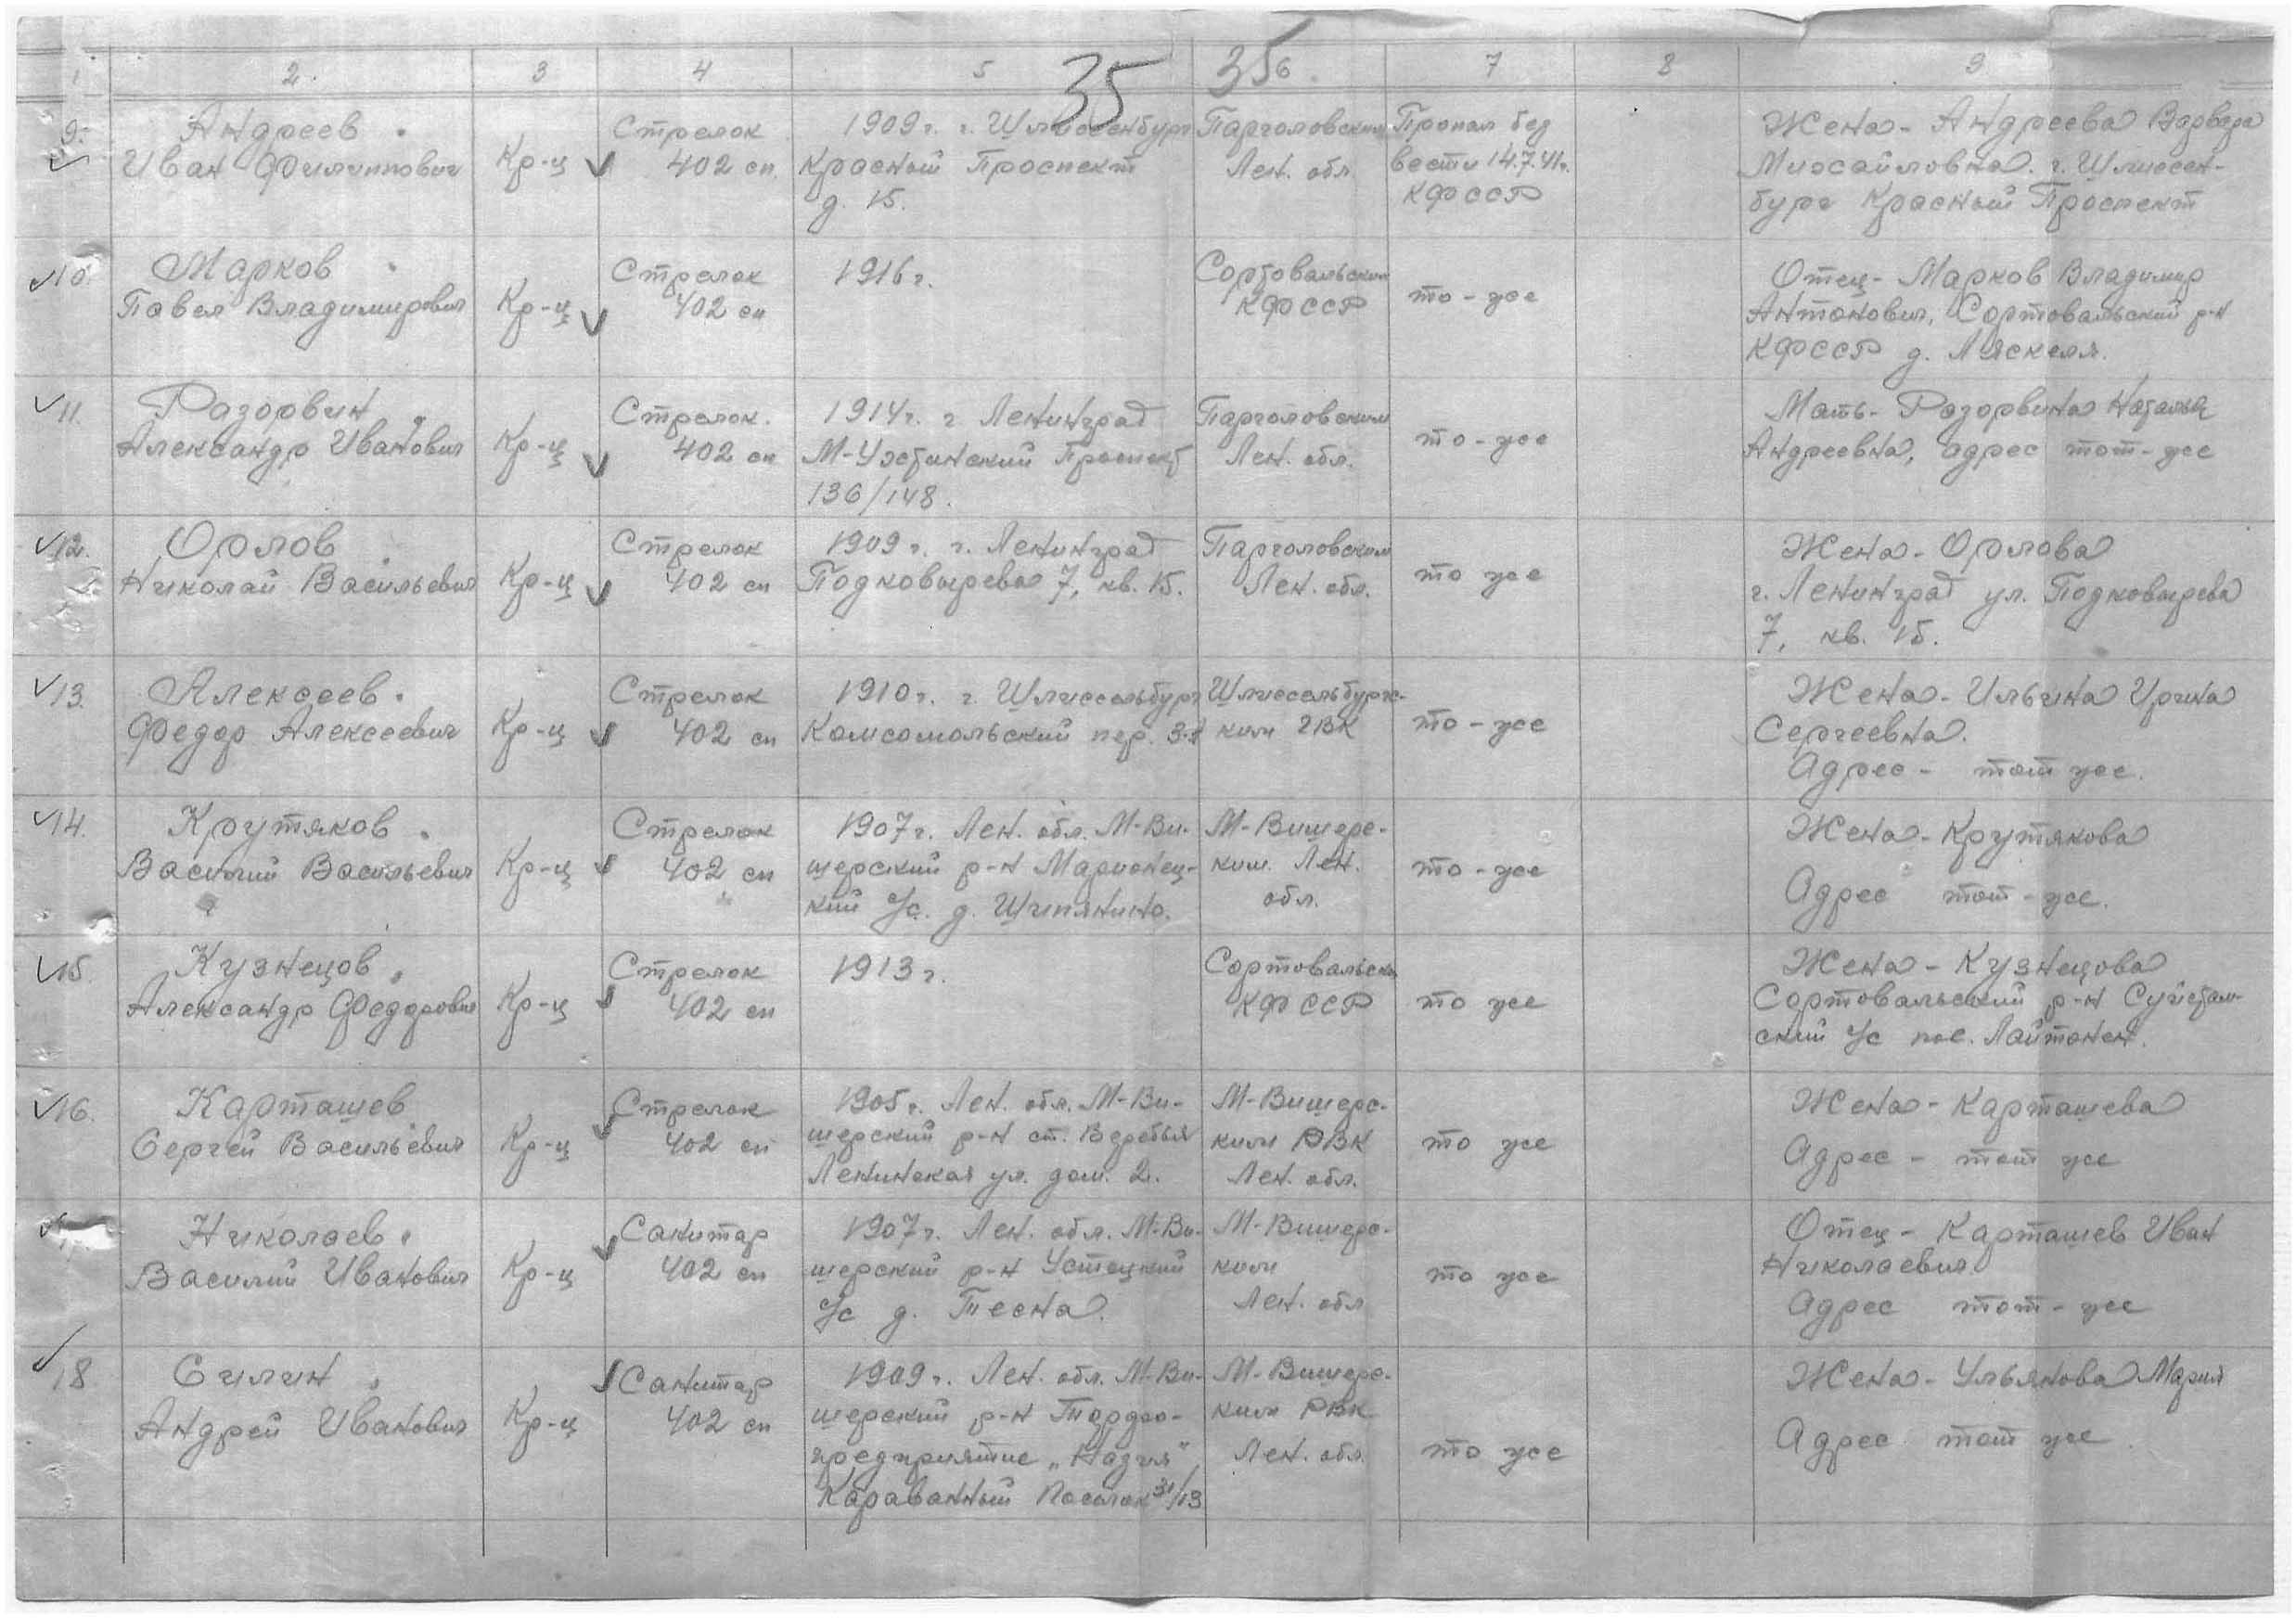 1 2. 3 4 5 35 35 6. 7 8 9
9. Андреев
Иван Филиппович
Кр-ц
Стрелок
402 сп
1909г. г. Шлиссенбург
Красный Проспект
д. 15.
Парголовским
Лен. обл.
Пропал без
вести 14.7.41г.
КФССР
Жена - Андреева Варвара
Михайловна. г. Шлиссен-
бург Красный Проспект
10. Марков
Павел Владимирович
Кр-ц
Стрелок
402 сп
1916г.
Сортовальским
КФССР
то-же
Отец - Марков Владимир
Антонович, Сортовальский р-н
КФССР д. Ляскеля.
11. Разорвин
Александр Иванович
Кр-ц
Стрелок.
402 сп
1914г. г Ленинград
М-Ухтинский Проспект
136/148.
Парголовским
Лен. обл.
то-же
Мать - Разорвина Наталья
Андреевна, адрес тот-же
12. Орлов
Николай Васильевич
Кр-ц
Стрелок
402 сп
1909г. г. Ленинград
Подковырева 7, кв. 15.
Парголовским
Лен. обл.
то же
Жена - Орлова
г. Ленинград ул. Подковырева
7, кв. 15.
13. Алексеев
Федор Алексеевич
Кр-ц
Стрелок
402 сп
1910г. г. Шлиссельбург
Комсомольский пер.
Шлиссельбургс-
ким ГВК
то-же
Жена - Ильина Ирина
Сергеевна.
Адрес - тот же.
14. Крутяков
Василий Васильевич
Кр-ц
Стрелок
402 сп
1907г. Лен. обл. М-Ви-
шерский р-н Марионец-
кий с/с. д. Шипянино.
М-Вишерс-
ким. Лен.
обл.
то-же
Жена - Крутякова
Адрес тот-же.
15. Кузнецов
Александр Федорович
Кр-ц
Стрелок
402 сп
1913г.
Сортовальским
КФССР
то же
Жена - Кузнецова
Сортовальский р-н Суйстам-
ский с/с пос. Лайтонен.
16. Карташев
Сергей Васильевич
Кр-ц
Стрелок
402 сп
1905г. Лен. обл. М-Ви-
шерский р-н ст. Веребья
Ленинская ул. дом. 2.
М-Вишерс-
ким РВК
Лен. обл.
то же
Жена - Карташева
Адрес - тот же
Николаев
Василий Иванович
Кр-ц
Санитар
402 сп
1907г. Лен. обл. М-Ви-
шерский р-н Устецкий
с/с д. Тесна.
М-Вишерс-
ким
Лен. обл
то же
Отец - Карташев Иван
Николаевич.
Адрес тот-же
18 Силин
Андрей Иванович
Кр-ц
Санитар
402 сп
1909г. Лен. обл. М-Ви-
шерский р-н Торфо-
предприятие „Назия"
Караванный Поселок 31/13
М-Вишерс-
ким РВК
Лен. обл
то же
Жена - Ульянова Мария
Адрес тот же